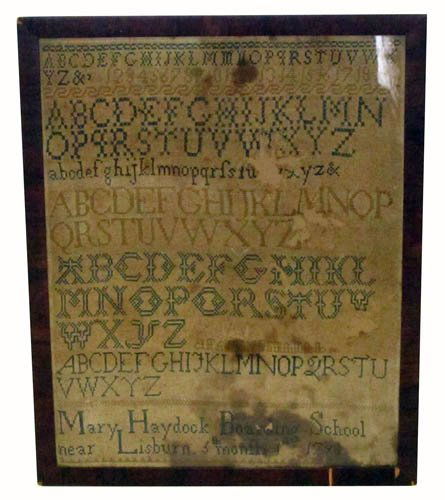 ABCDEFGHIJKLMNOPQRSTUVWX
YZ&
ABCDEFGHIJKLMN
OPQRSTUVWXYZ
abcdefghijklmnopqrsstu xyz&
ABCDEFGHIJKLMNOP
QRSTUVWXYZ
ABCDEFGHIKL
MNOPQRSTUV
WXYZ
ABCDEFGHIJKLMNOPQRSTU
VWXYZ
Mary Haydock Boarding School
near Lisburn 5th month